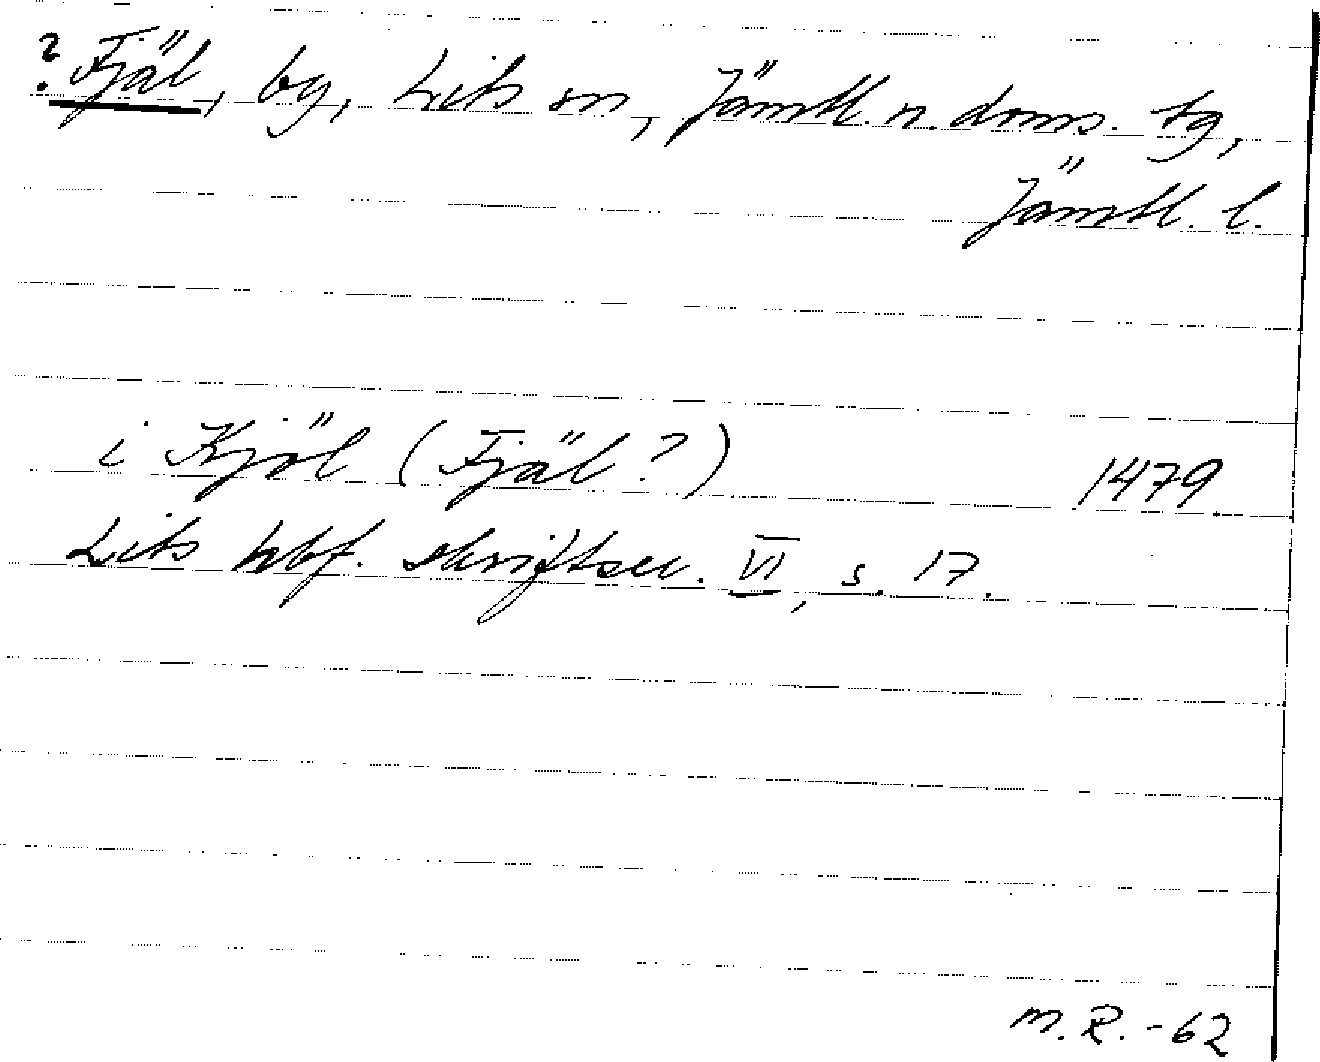 ? Fjäl, by, Lits sn, Jämtl. n. doms. tg,
Jämtl. l.
i Kjöl (Fjäl?) 1479
Lits hbf. skriftser. VI, s. 17.
M.R. -62